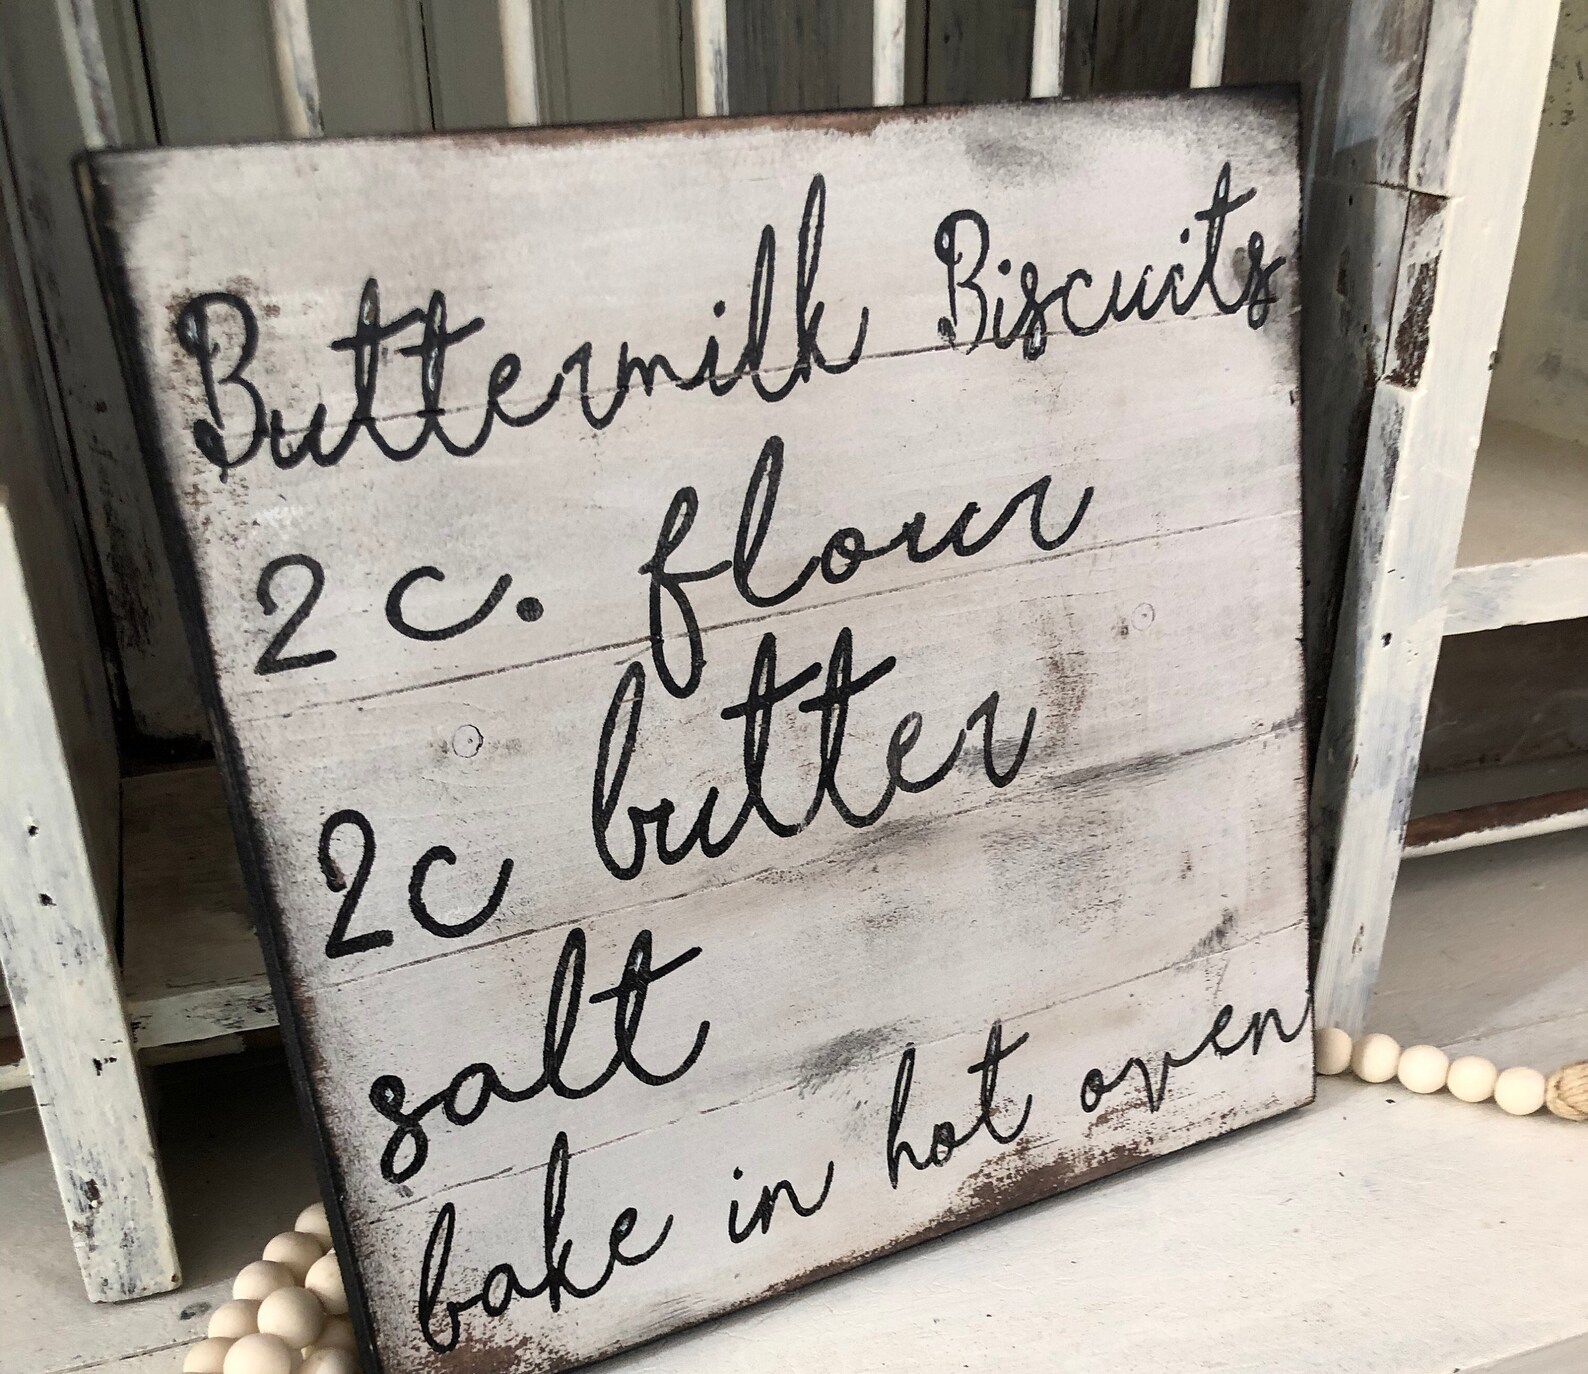 Buttermilk Biscuits
2 c. flour
2c butter
salt
bake in hot oven